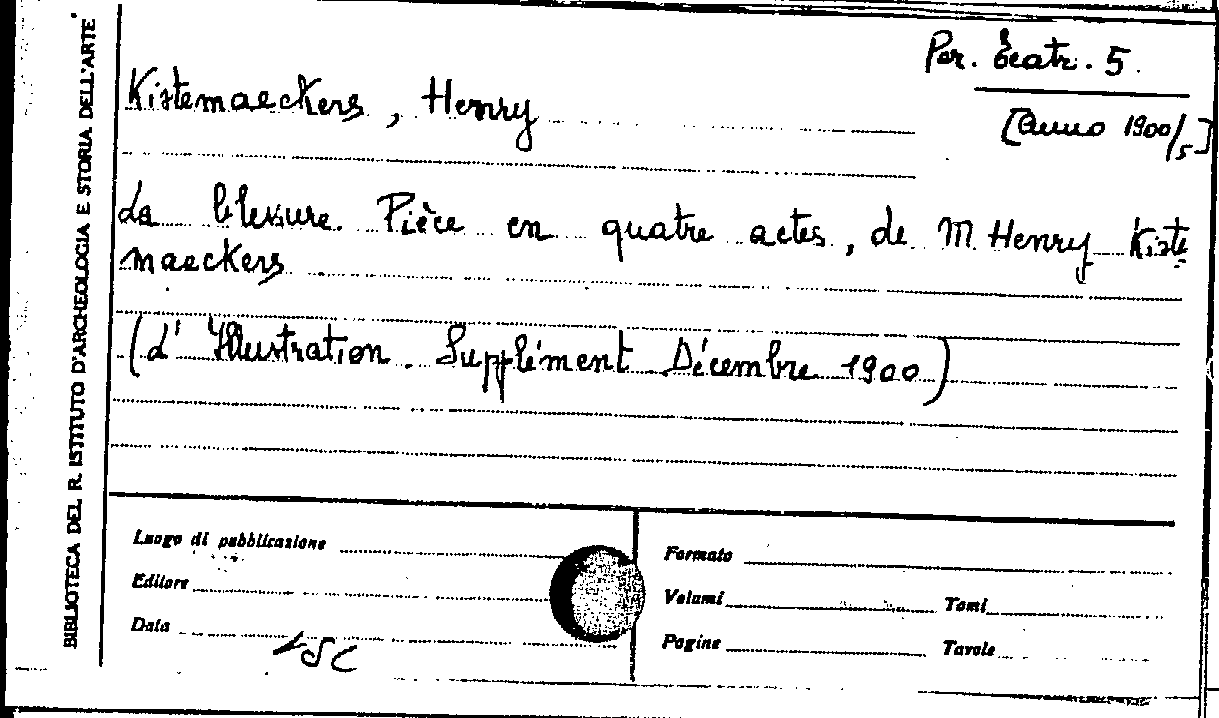 Per. Teatr. 5.
[Anno 1900/5]
Kistemaeckers, Henry
La blessure. Pièce en quatre actes, de M. Henry Kiste
maeckers
(L'Illustration. Supplément Décembre 1900)
BIBLIOTECA DEL R. ISTITUTO D'ARCHEOLOGIA E STORIA DELL'ARTE
Luogo di pubblicazione
Editore
Data
Formato
Volumi Tomi
Pagine Tavole